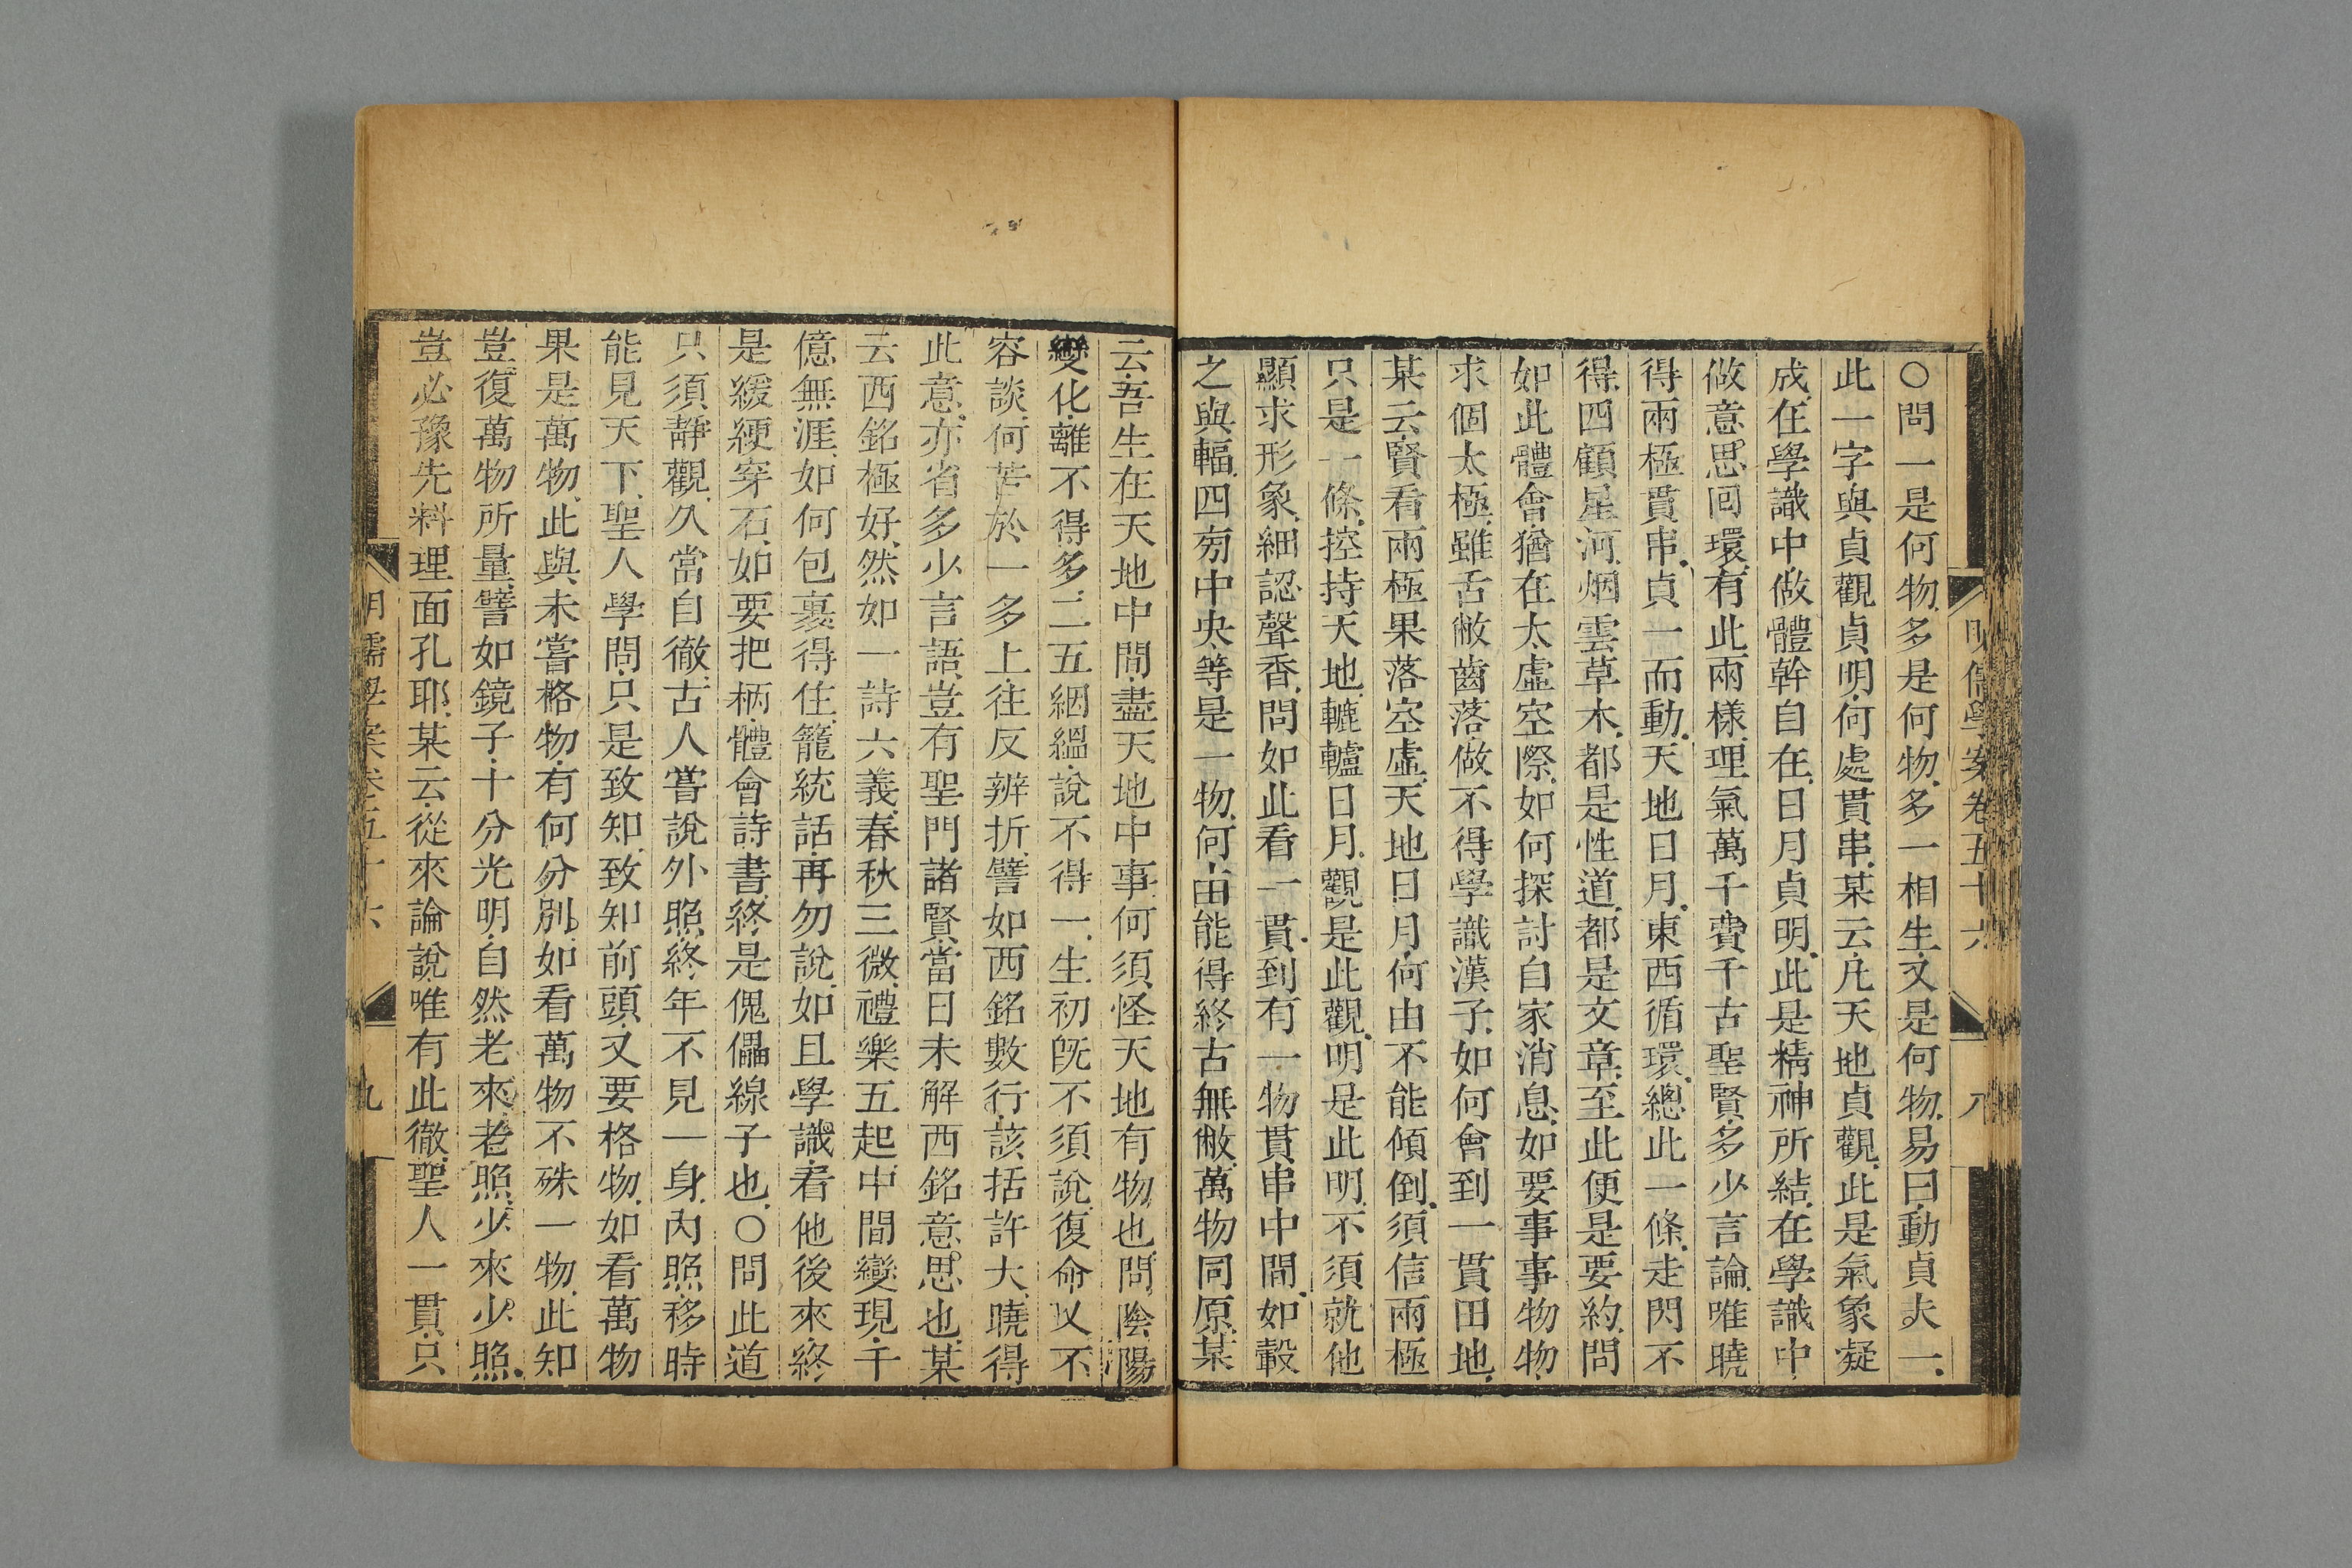 明儒學案卷五十六
八
○問一是何物.多是何物.多一相生.又是何物.易曰.動貞夫一.
此一字與貞觀貞明.何處貫串.某云.凡天地貞觀.此是氣象凝
成.在學識中.做體幹自在.日月貞明.此是精神所結.在學識中.
做意思回環.有此兩樣.理氣萬千.費千古聖賢.多少言論.唯曉
得兩極貫串.貞一而動.天地日月.東西循環.總此一條.走閃不
得.四顧星河.烟雲草木.都是性道.都是文章.至此便是要約.問
如此體會.猶在太虛空際.如何探討自家消息.如要事事物物.
求個太極.雖舌敝齒落.做不得學識漢子.如何會到一貫田地.
某云.賢看兩極果落空虛.天地日月.何由不能傾倒.須信兩極
只是一條.控持天地.轆轤日月.觀是此觀.明是此明.不須就他
顯求形象.細認聲香.問如此看一貫.到有一物貫串中間.如轂
之與輻.四旁中央.等是一物.何由能得終古無敝.萬物同原.某
云.吾生在天地中間.盡天地中事.何須怪天地有物也.問陰陽
變化.離不得多.二五絪縕.說不得一.生初既不須說.復命又不
容談.何苦於一多上.往反辨折.譬如西銘數行.該括許大.曉得
此意.亦省多少言語.豈有聖門諸賢.當日未解西銘意思也.某
云西銘極好.然如一詩六義.春秋三微.禮樂五起.中間變現.千
億無涯.如何包裹得住.籠統話再勿說.如且學識.看他後來.終
是緩綆穿石.如要把柄.體會詩書.終是傀儡線子也.○問此道
只須靜觀.久當自徹.古人嘗說外照.終年不見一身.內照.移時
能見天下.聖人學問.只是致知.致知前頭.又要格物.如看萬物
果是萬物.此與未嘗格物.有何分別.如看萬物不殊一物.此知
豈復萬物所量.譬如鏡子.十分光明.自然老來老照.少來少照.
豈必豫先料理面孔耶.某云.從來論說.唯有此徹.聖人一貫.只
明儒學案卷五十六
九